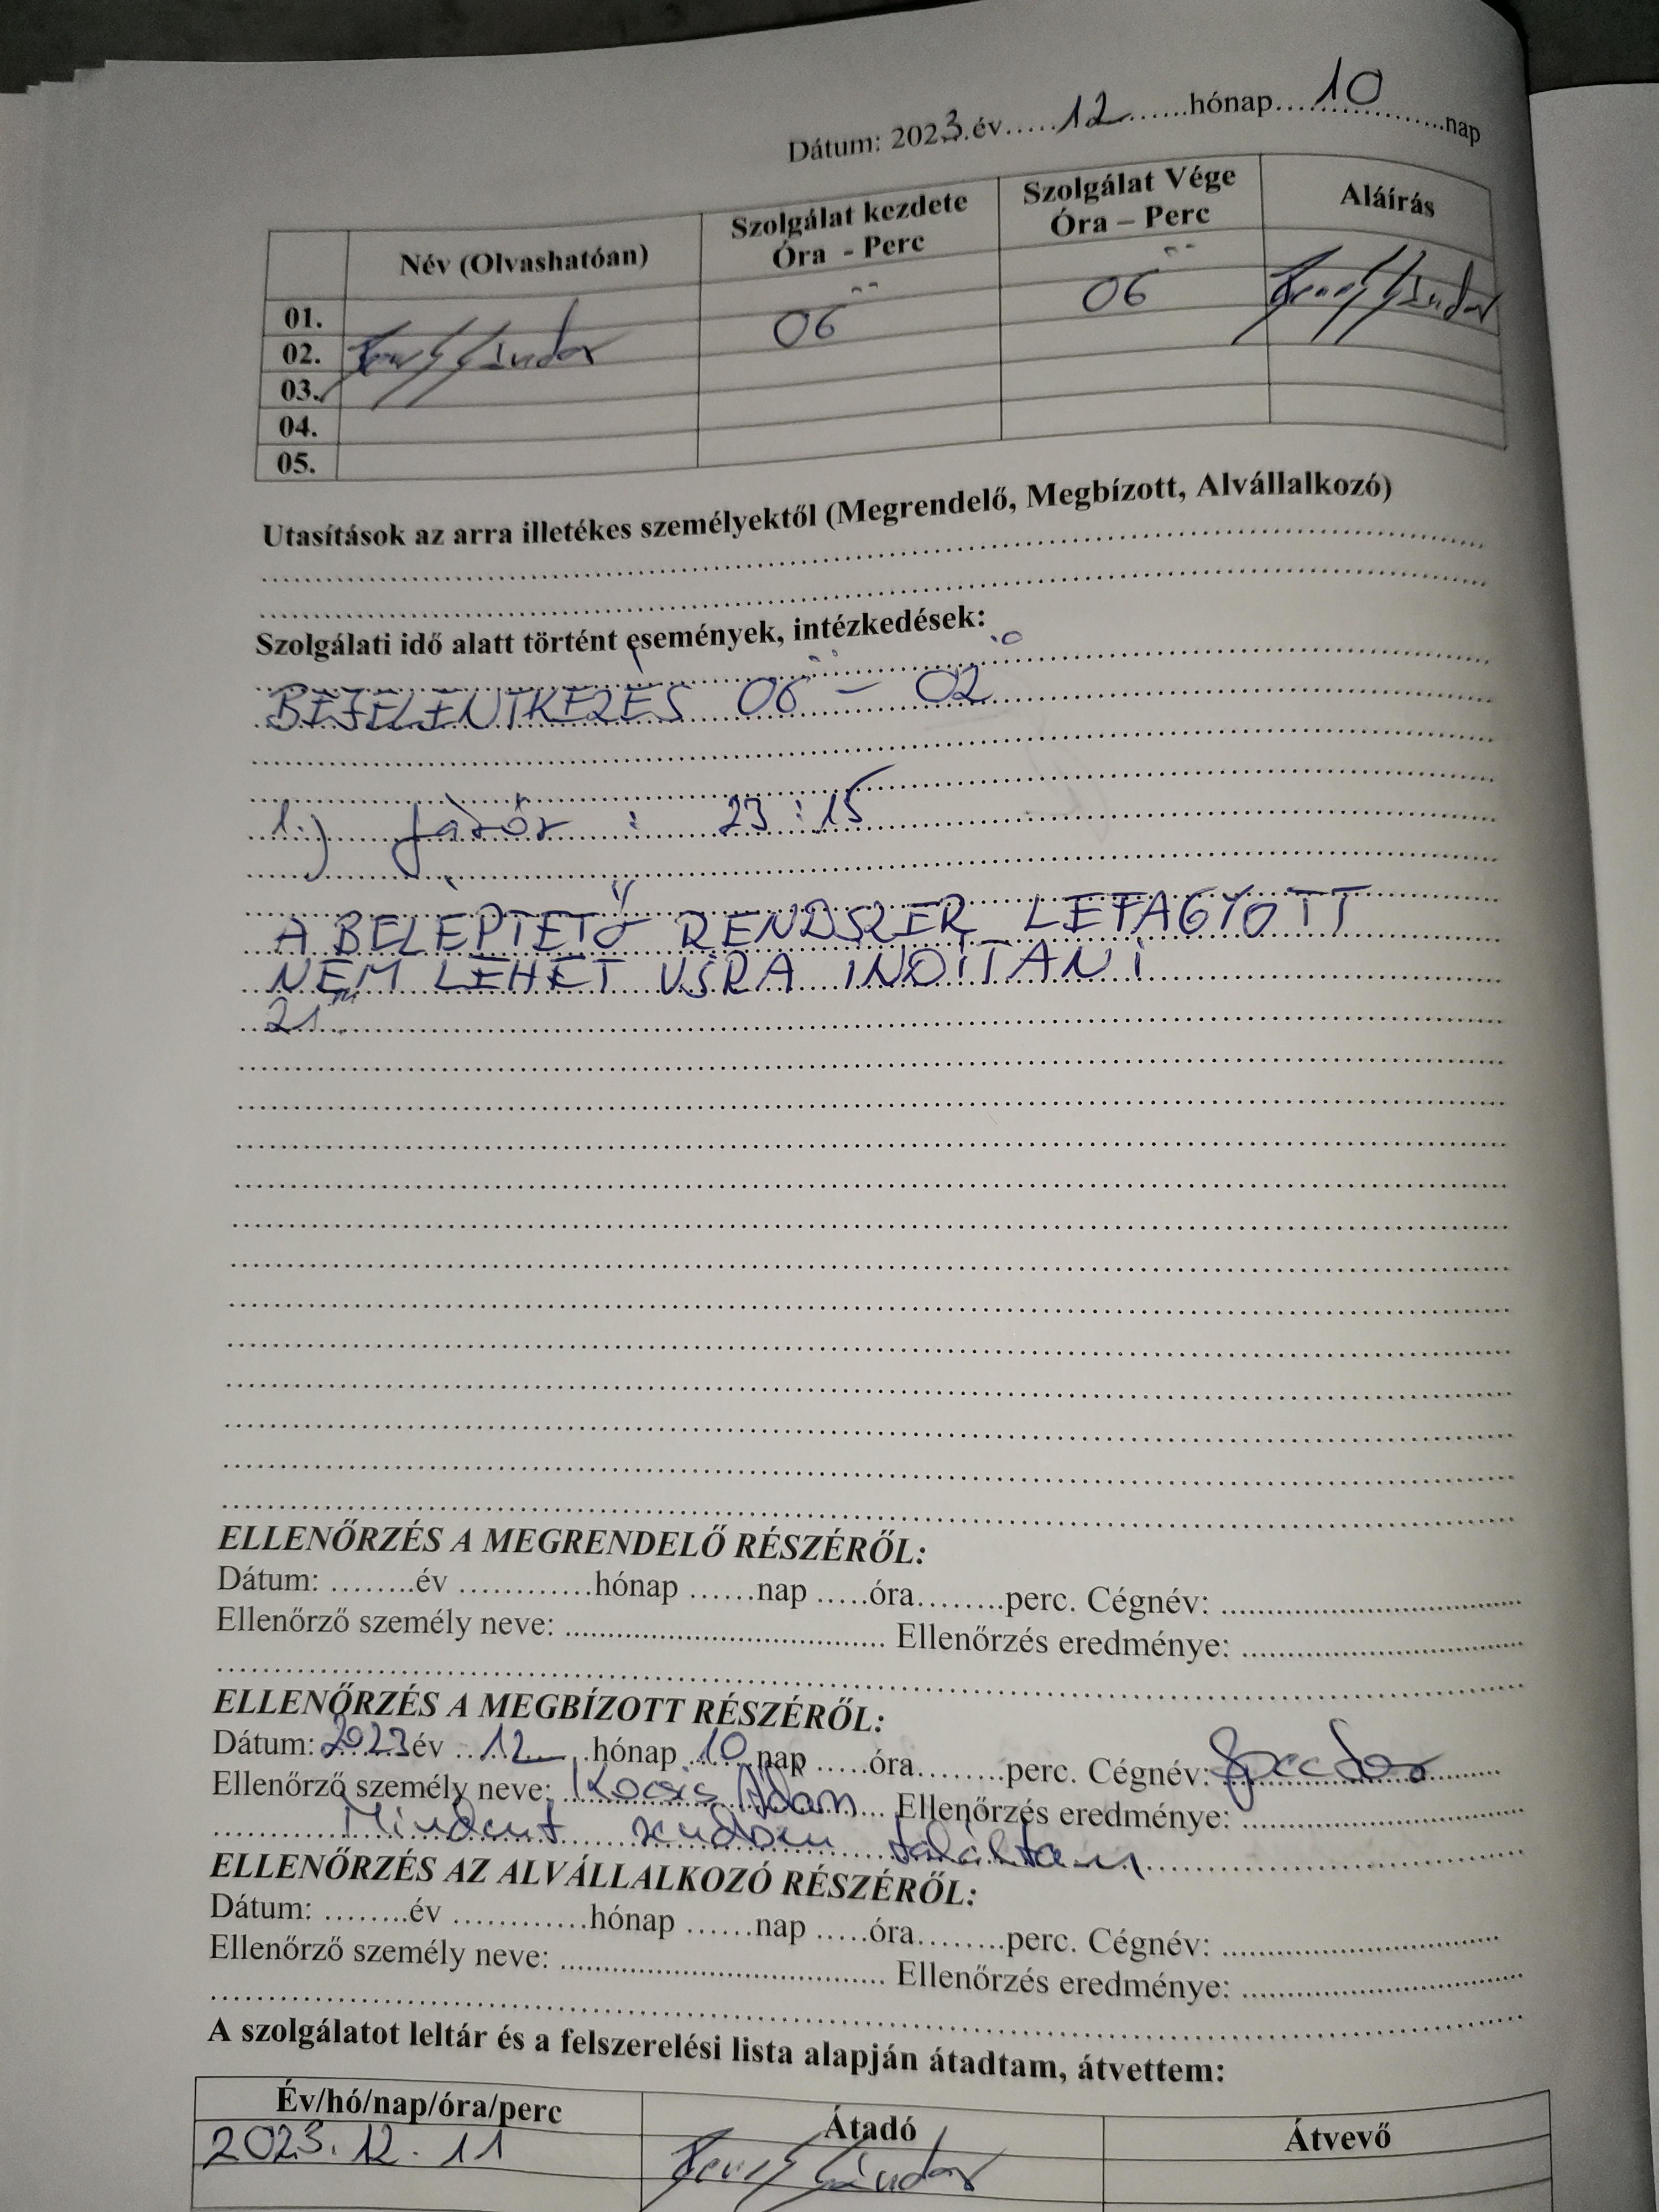 Dátum: 2023.év.....12.......hónap....10........nap
Név (Olvashatóan) Szolgálat kezdete Óra - Perc Szolgálat Vége Óra – Perc Aláírás
01. 06 06
02. Sándor Sándor
03.
04.
05.
Utasítások az arra illetékes személyektől (Megrendelő, Megbízott, Alvállalkozó)
Szolgálati idő alatt történt események, intézkedések:
BEJELENTKEZÉS 06 – 02
1.) Járőr : 23:15
A BELÉPTETŐ RENDSZER LEFAGYOTT
NEM LEHET ÚJRA INDÍTANI
21
ELLENŐRZÉS A MEGRENDELŐ RÉSZÉRŐL:
Dátum: ........év ............hónap ......nap .....óra........perc. Cégnév: ..............................
Ellenőrző személy neve: .................................... Ellenőrzés eredménye: ..............................
ELLENŐRZÉS A MEGBÍZOTT RÉSZÉRŐL:
Dátum: 2023 év 12 hónap 10 nap .....óra........perc. Cégnév:
Ellenőrző személy neve: Kocsis Ádám Ellenőrzés eredménye: ..............................
Mindent rendben találtam
ELLENŐRZÉS AZ ALVÁLLALKOZÓ RÉSZÉRŐL:
Dátum: ........év ............hónap ......nap .....óra........perc. Cégnév: ..............................
Ellenőrző személy neve: .................................... Ellenőrzés eredménye: ..............................
A szolgálatot leltár és a felszerelési lista alapján átadtam, átvettem:
Év/hó/nap/óra/perc Átadó Átvevő
2023.12.11 Sándor